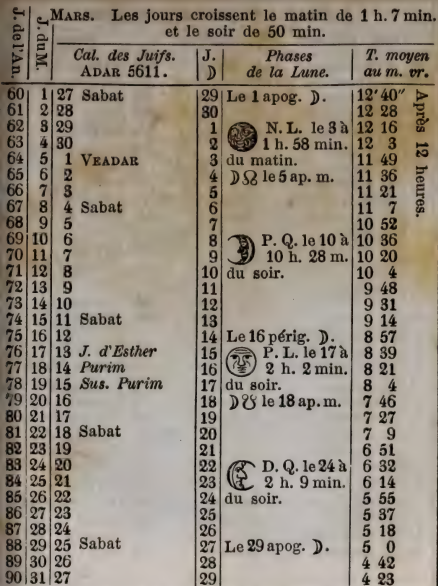 J. de l'An.
J. du M.
MARS. Les jours croissent le matin de 1 h. 7 min.
et le soir de 50 min.
Cal. des Juifs. J. Phases T. moyen
ADAR 5611. ☽ de la Lune. au m. vr.
60 1 27 Sabat 29 Le 1 apog. ☽. 12' 40"
61 2 28 30 12 28
62 3 29 1 N. L. le 3 à 12 16
63 4 30 2 1 h. 58 min. 12 3
64 5 1 VEADAR 3 du matin. 11 49
65 6 2 4 ☽☊ le 5 ap. m. 11 36
66 7 3 5 11 21
67 8 4 Sabat 6 11 7
68 9 5 7 10 52
69 10 6 8 P. Q. le 10 à 10 36
70 11 7 9 10 h. 28 m. 10 20
71 12 8 10 du soir. 10 4
72 13 9 11 9 48
73 14 10 12 9 31
74 15 11 Sabat 13 9 14
75 16 12 14 Le 16 périg. ☽. 8 57
76 17 13 J. d'Esther 15 P. L. le 17 à 8 39
77 18 14 Purim 16 2 h. 2 min. 8 21
78 19 15 Sus. Purim 17 du soir. 8 4
79 20 16 18 ☽☋ le 18 ap. m. 7 46
80 21 17 19 7 27
81 22 18 Sabat 20 7 9
82 23 19 21 6 51
83 24 20 22 D. Q. le 24 à 6 32
84 25 21 23 2 h. 9 min. 6 14
85 26 22 24 du soir. 5 55
86 27 23 25 5 37
87 28 24 26 5 18
88 29 25 Sabat 27 Le 29 apog. ☽. 5 0
89 30 26 28 4 42
90 31 27 29 4 23
Après 12 heures.